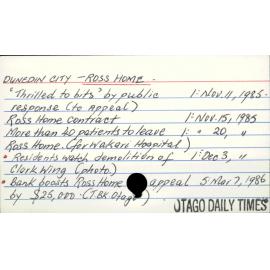 DUNEDIN CITY - ROSS HOME.
"Thrilled to bits" by public 1: Nov. 11, 1985.
response (to appeal)
Ross Home contract 1: Nov. 15, 1985
More than 40 patients to leave 1: " 20, "
Ross Home. (for Wakari Hospital)
• Residents watch demolition of 1: Dec 3, "
Clark Wing (photo.)
• Bank boosts Ross Home appeal 5 Mar 7, 1986
by $25,000. (TBK Otago)
OTAGO DAILY TIMES